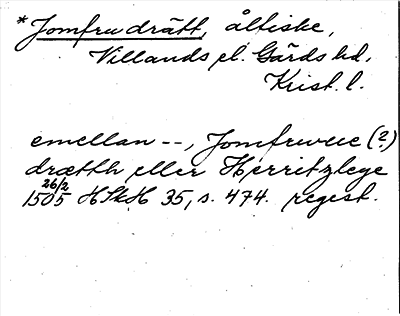 * Jomfru drätt, ålfiske,
Villands el. Gärds hd,
Krist. l.
emellan --, Jomfrwue (?)
drætth eller Herritzlege
26/2
1505 HSkH 35, s. 474. regest.